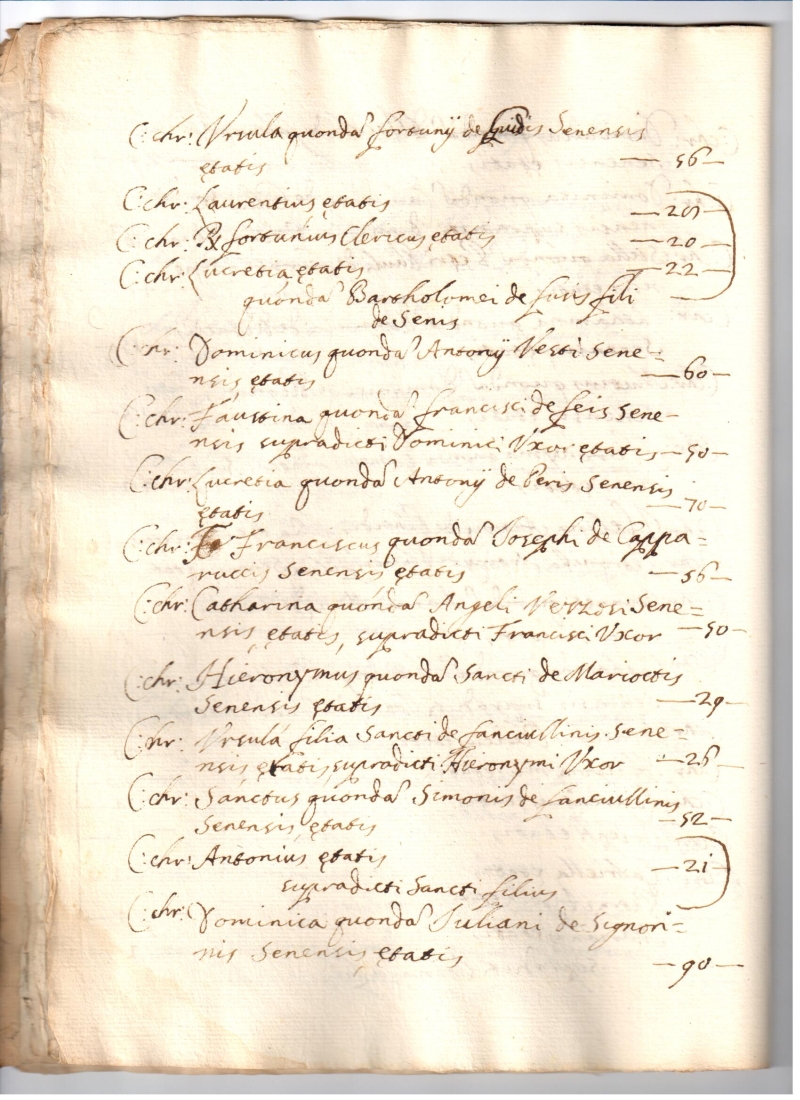 C: chr: Vrsula quonda˜ fortunij de Guidis Senensis
ętatis — 56 —
C: chr: Laurentius ętatis
C: chr: fortunius Clericus ętatis — 20 —
C: chr: Lucretia ętatis — 22 —
quonda˜ Bartholomei de fili
de Senis
C: chr: Dominicus quonda˜ Antonij Vesti Sene=
nsis ętatis — 60 —
C: chr: Faustina quonda˜ francisci de feis Sene-
nsis supradicti Dominici Vxor ętatis — 50 —
C: chr: Lucretia quonda˜ Antonij de Peris Senensis
ętatis — 70 —
C: chr: Franciscus quonda˜ Josephi de Cappa=
ruccis Senensis ętatis — 56 —
C: chr: Catharina quonda˜ Angeli Verzosi Sene=
nsis, ętatis, supradicti Francisci Vxor — 50 —
C: chr: Hieronymus quonda˜ Sancti de Marioctis
Senensis ętatis — 29 —
C: chr: Vrsula filia Sancti de fanciullinis Sene=
nsis ętatis, supradicti Hieronymi Vxor — 26 —
C: chr: Sanctus quonda˜ Simonis de fanciullinis
Senensis, ętatis — 52 —
C: chr: Antonius, ętatis — 21 —
supradicti Sancti filius
C: chr: Dominica quonda˜ Juliani de Signori=
nis Senensis ętatis — 90 —